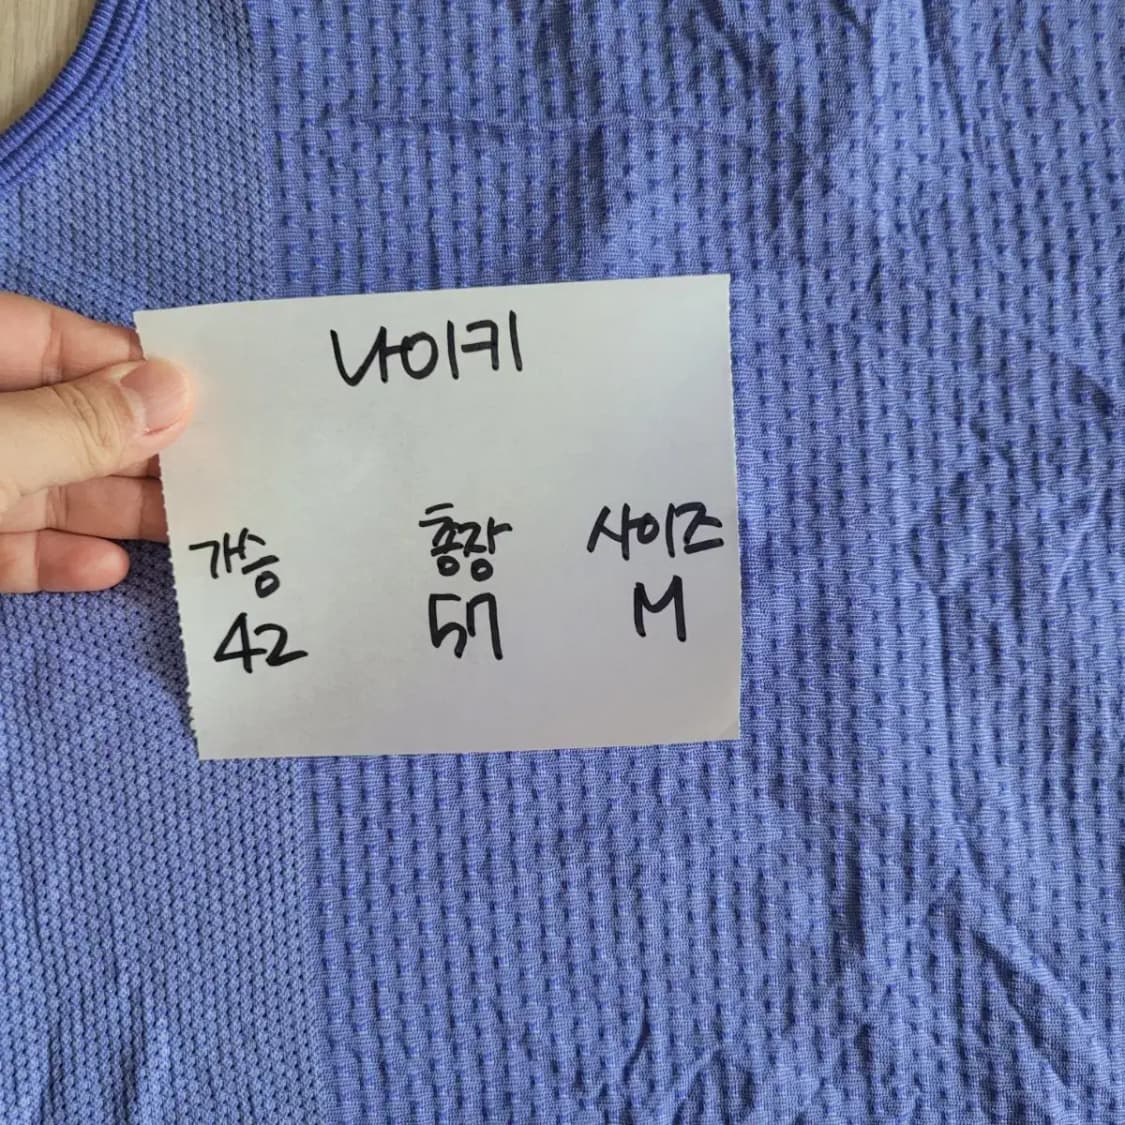 나이키
가슴 총장 사이즈
42 57 M